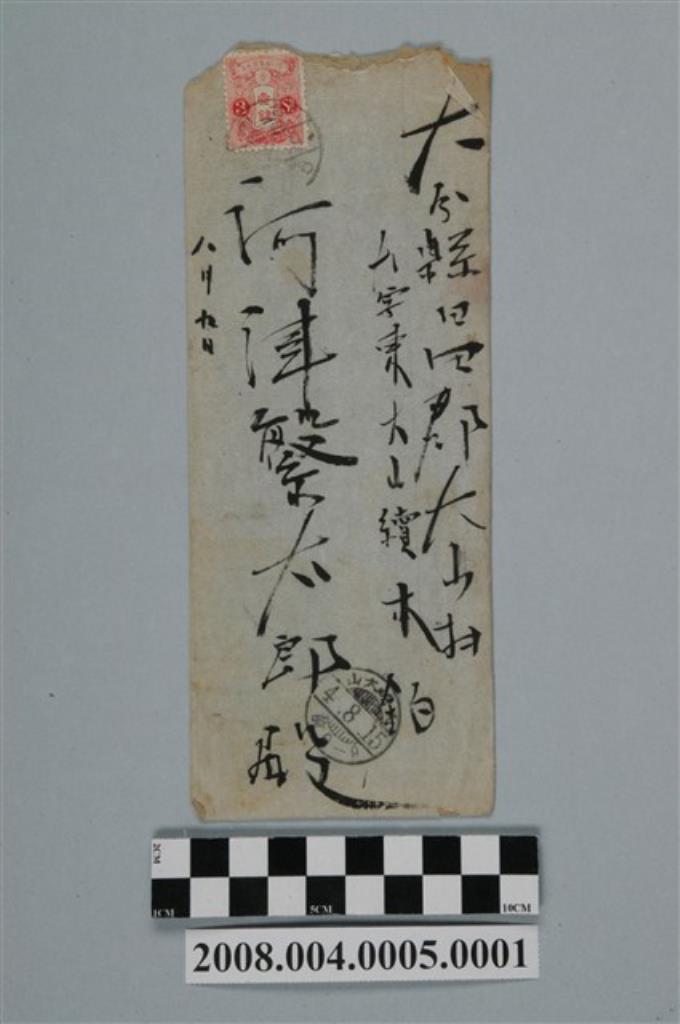 大分縣日田郡大山村
大字東大山續木
河津繁太郎殿
八月九日
4.8.15
2CM
1CM
5CM
10CM
2008.004.0005.0001